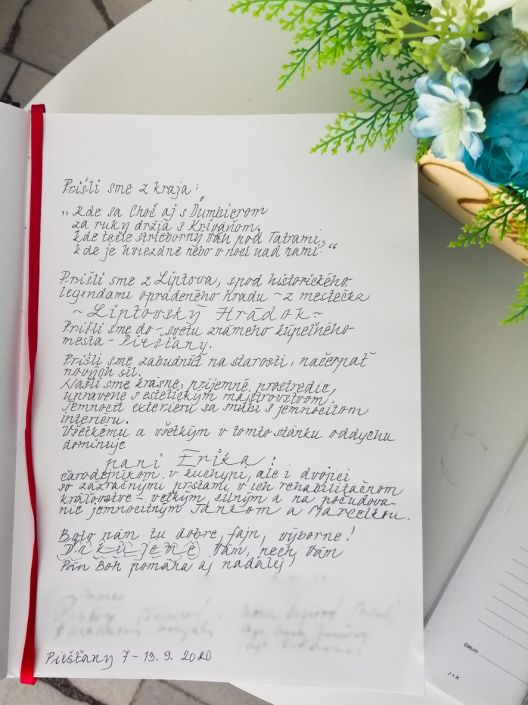 Prišli sme z kraja:
„Kde sa Choč aj s Ďumbierom
za ruky držia s Kriváňom,
kde tečie strieborný Váh pod Tatrami,
kde je hviezdne nebo v noci nad nami."
Prišli sme z Liptova, spod historického
legendami opradeného hradu – z mestečka
~ Liptovský Hrádok ~
Prišli sme do svetu známeho kúpeľného
mesta – Piešťany.
Prišli sme zabudnúť na starosti, načerpať
nových síl.
Našli sme krásne, príjemné prostredie,
upravené s estetickým majstrovstvom,
jemnosť exteriéru sa snúbi s jemnocitom
interiéru.
Všetkému a všetkým v tomto stánku oddychu
dominuje
pani Erika;
čarodejníkom v kuchyni, ale i dvojici
so zázračnými prstami v ich rehabilitačnom
kráľovstve – veľkým, silným a na počudova-
nie jemnocitným Jankom a Marcelkou.
Bolo nám tu dobre, fajn, výborne!
Ďakujeme Vám, nech Vám
Pán Boh pomáha aj naďalej!
Piešťany 7 – 13. 9. 2020
Dátum:
J+K